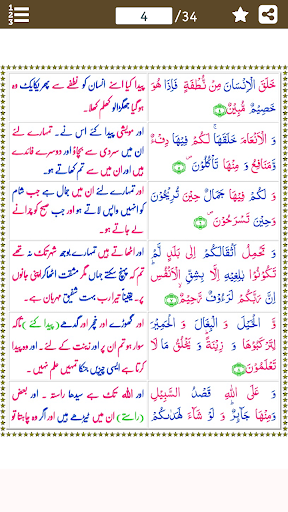 1
2
3
4 / 34
خَلَقَ الْاِنْسَانَ مِنْ نُّطْفَةٍ فَاِذَا هُوَ
خَصِيْمٌ مُّبِيْنٌ ۝
پیدا کیا اسنے انسان کو نطفے سے پھر یکایک وہ
ہو گیا جھگڑالو کھلم کھلا۔
وَ الْاَنْعَامَ خَلَقَهَا ۚ لَكُمْ فِيْهَا دِفْءٌ
وَّمَنَافِعُ وَ مِنْهَا تَاْكُلُوْنَ ۝
اور مویشی پیدا کئے اس نے۔ تمہارے لئے
ان میں سردی سے بچاؤ اور دوسرے فائدے
ہیں اور ان میں سے تم کھاتے ہو۔
وَ لَكُمْ فِيْهَا جَمَالٌ حِيْنَ تُرِيْحُوْنَ
وَحِيْنَ تَسْرَحُوْنَ ۝
اور تمہارے لئے ان میں جمال ہے جب شام
کو انہیں واپس لاتے ہو اور جب صبح کو چرانے
لے جاتے ہو۔
وَ تَحْمِلُ اَثْقَالَكُمْ اِلٰى بَلَدٍ لَّمْ
تَكُوْنُوْا بٰلِغِيْهِ اِلَّا بِشِقِّ الْاَنْفُسِ ؕ
اِنَّ رَبَّكُمْ لَرَءُوْفٌ رَّحِيْمٌ ۝
اور اٹھاتے ہیں تمہارے بوجھ شہر تک نہ تھے
تم کہ پہنچ سکتے جہاں مگر مشقت اٹھا کر اپنی جانوں
پر۔ یقیناً تیرا رب بہت شفیق مہربان ہے۔
وَّ الْخَيْلَ وَ الْبِغَالَ وَ الْحَمِيْرَ
لِتَرْكَبُوْهَا وَ زِيْنَةً ؕ وَ يَخْلُقُ مَا لَا
تَعْلَمُوْنَ ۝
اور گھوڑے اور خچر اور گدھے (پیدا کئے) تاکہ
سوار ہو تم ان پر اور زینت کے لئے ۔ اور وہ پیدا
کرتا ہے ایسی چیزیں جنکا تمہیں علم نہیں۔
وَ عَلَى اللّٰهِ قَصْدُ السَّبِيْلِ
وَمِنْهَا جَآئِرٌ ؕ وَ لَوْ شَآءَ لَهَدٰىكُمْ
اور اللہ تک ہے سیدھا راستہ ۔ اور بعض
(راستے) ان میں ٹیڑھے ہیں اور اگر وہ چاہتا تو